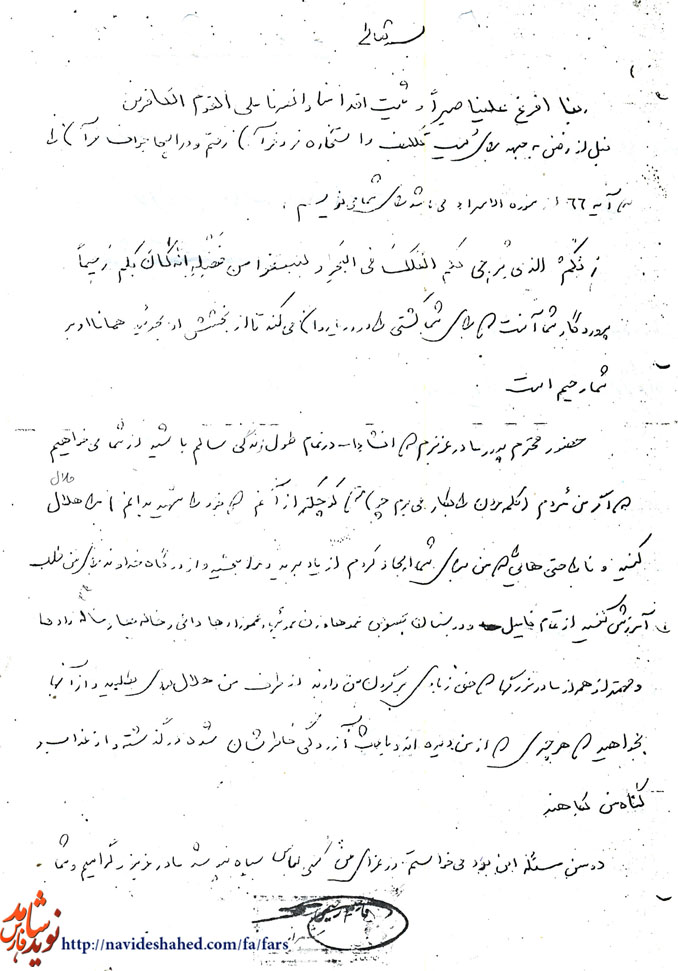 بسمه تعالی
ربنا افرغ علینا صبراً و ثبت اقدامنا و انصرنا علی القوم الکافرین
قبل از رفتن به جبهه برای تکلیف با استخاره نزد قرآن رفتم و در اینجا جواب قرآن را
که آیه ۶۶ از سوره الاسراء می باشد برای شما می نویسم .
ربکم الذی یزجی لکم الفلک فی البحر لتبتغوا من فضله انه کان بکم رحیماً
پروردگار شما آنست که برای شما کشتی را در دریا روان می کند تا از بخشش او بجوئید همانا او بر
شما رحیم است
حضور محترم پدر و مادر عزیزم که انشاءالله در تمام طول زندگی سالم باشید از شما می خواهیم
که اگر من مُردم کلمه مردن را بکار می برم چون کوچکتر از آنم که خود را شهید بدانم مرا حلال
حلال
کنید و ناراحتی هایی که من برای شما ایجاد کردم از یاد ببرید و مرا ببخشید و از درگاه خداوند برای من طلب
آمرزش کنید از تمام فامیل و دوستان بخصوص عمه ها و زن عمو عموزاده ها دائی و خاله ها و خاله زاده ها
و مهمتر از همه از مادربزرگها که حق زیادی بر گردن من دارند از طرف من حلال بودی بطلبید و از آنها
بخواهید که هر چیزی که از من دیده اند و باعث آزردگی خاطرشان شده درگذشته و از عذاب و
گناه من بکاهند
دومین مسئله این بود می خواستم در عزای من کسی لباس سیاه نپوشد مادر عزیز و گرامیم و شما
نوید شاهد فارس
http://navideshahed.com/fa/fars